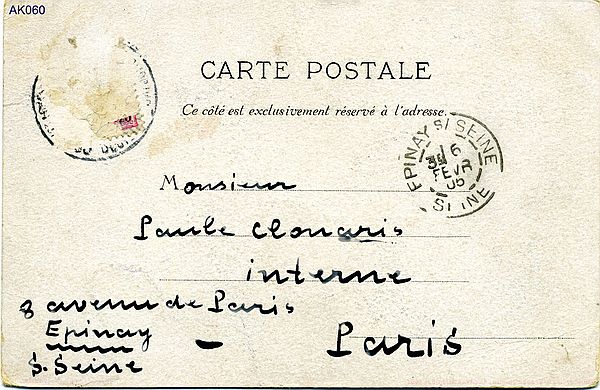 AK060
CARTE POSTALE
Ce côté est exclusivement réservé à l'adresse.
EPINAY S/ SEINE
3E 16
FEVR
05
SEINE
Monsieur
Paule Clonaris
interne
8 avenue de Paris
Epinay - Paris
S. Seine